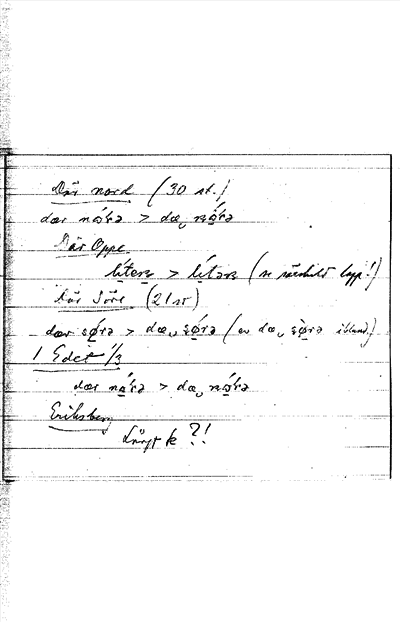 Där nord (30 st.)
dær nǫ́rə > dæ‿ nǫ́rə
Där Oppe
líterᶇ > lítərᶇ (se särskild lapp!)
Där Söre (21 st)
dær sǿrə > dæ‿ sǿrə (av dæ‿ sø̀rə ibland.)
1 Edet 1/3
dær nǫ́rə > dæ‿ nǫ́rə
Eriksberg
Långt k ?!